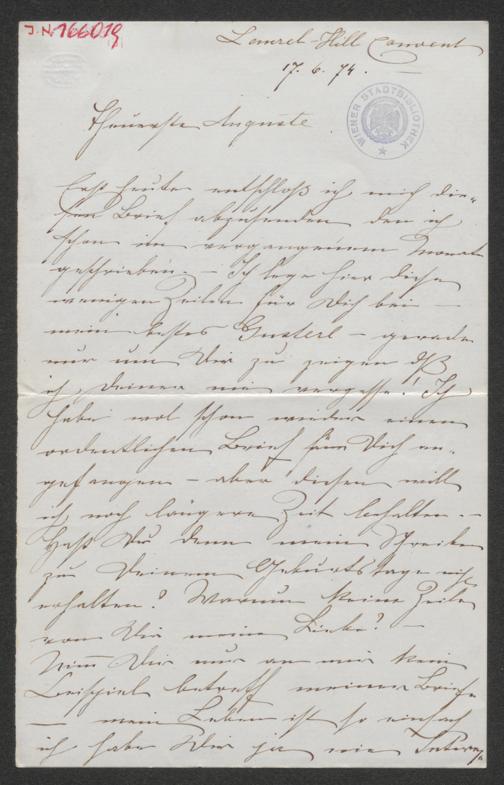 J.N. 166019
Laurel-Hill Convent
17. 6. 74.
WIENER STADTBIBLIOTHEK
Theuerste Auguste
Erst heute entschloß ich mich die-
sen Brief abzusenden den ich
schon im vergangenem Monat
geschrieben. – Ich lege hier diese
wenigen Zeilen für Dich bei –
mein bestes Gusterl – gerade
nur um Dir zu zeigen dß
ich Deiner nie vergesse! Ich
habe wol schon wieder einen
ordentlichen Brief für Dich an-
gefangen – aber diesen will
ich noch längere Zeit behalten –
Hast Du denn mein Schreiben
zu Deinem Geburtstage nicht
erhalten? Warum keine Zeile
von Dir meine Liebe? –
Nimm Dir nur an mir kein
Beispiel betreff meiner Briefe
– mein Leben ist so einfach
ich habe Dir ja nie